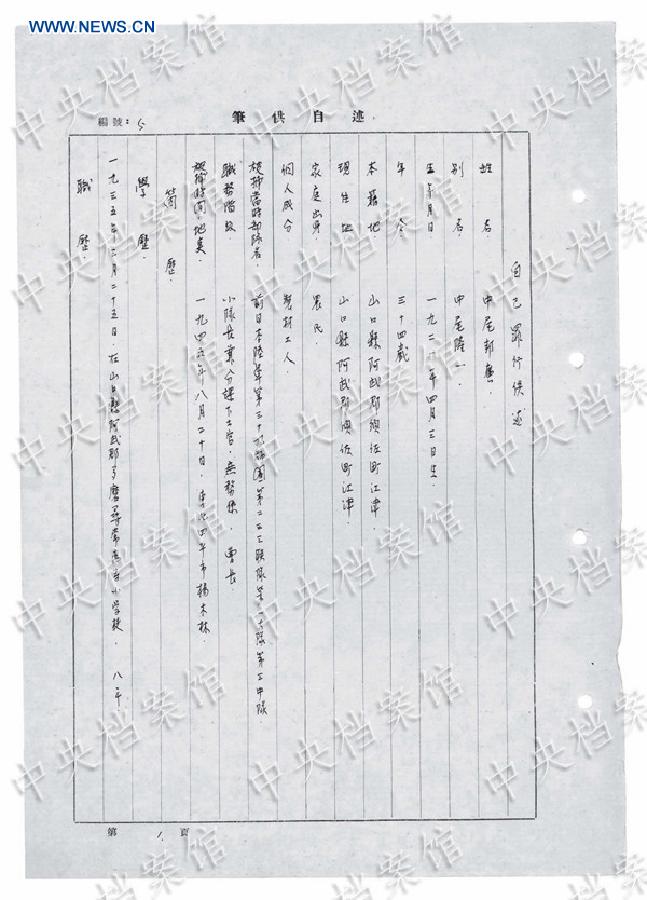 WWW.NEWS.CN
編號：5
筆供自述
自己罪行供述
姓名．中尾邦廣．
别名．中尾隆一．
生年月日 一九二一年四月三日生．
年令．三十四歲
本籍地．山口縣阿武郡須佐町江津．
現住址 山口縣阿武郡須佐町江津．
家庭出身．農民．
個人成分 製材工人．
被捕當時部隊名．前日本陸軍第三十九師團第二三三聯隊第一大隊第三中隊．
職務階級 小隊長兼分課下士官．無務係．曹長．
被俘時间．地奌．一九四五年八月二十日．
简歷．
學歷．
一九三五年三月二十五日．在山口縣阿武郡多磨尋常高等小学校．八年．
職歷．
第 1. 頁
中央档案馆